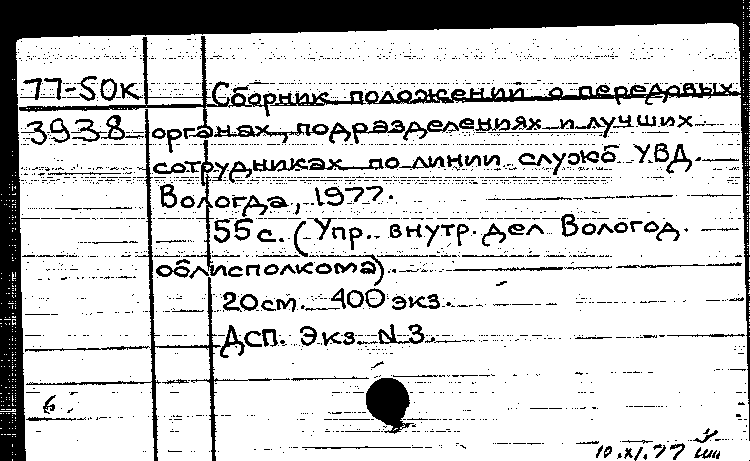 77-50к Сборник положений о передовых
3938 органах, подразделениях и лучших
сотрудниках по линии служб УВД.
Вологда, 1977.
55 с. (Упр. внутр. дел Вологод.
облисполкома).
20 см. 400 экз.
ДСП. Экз. N 3.
6.
10.XI.77